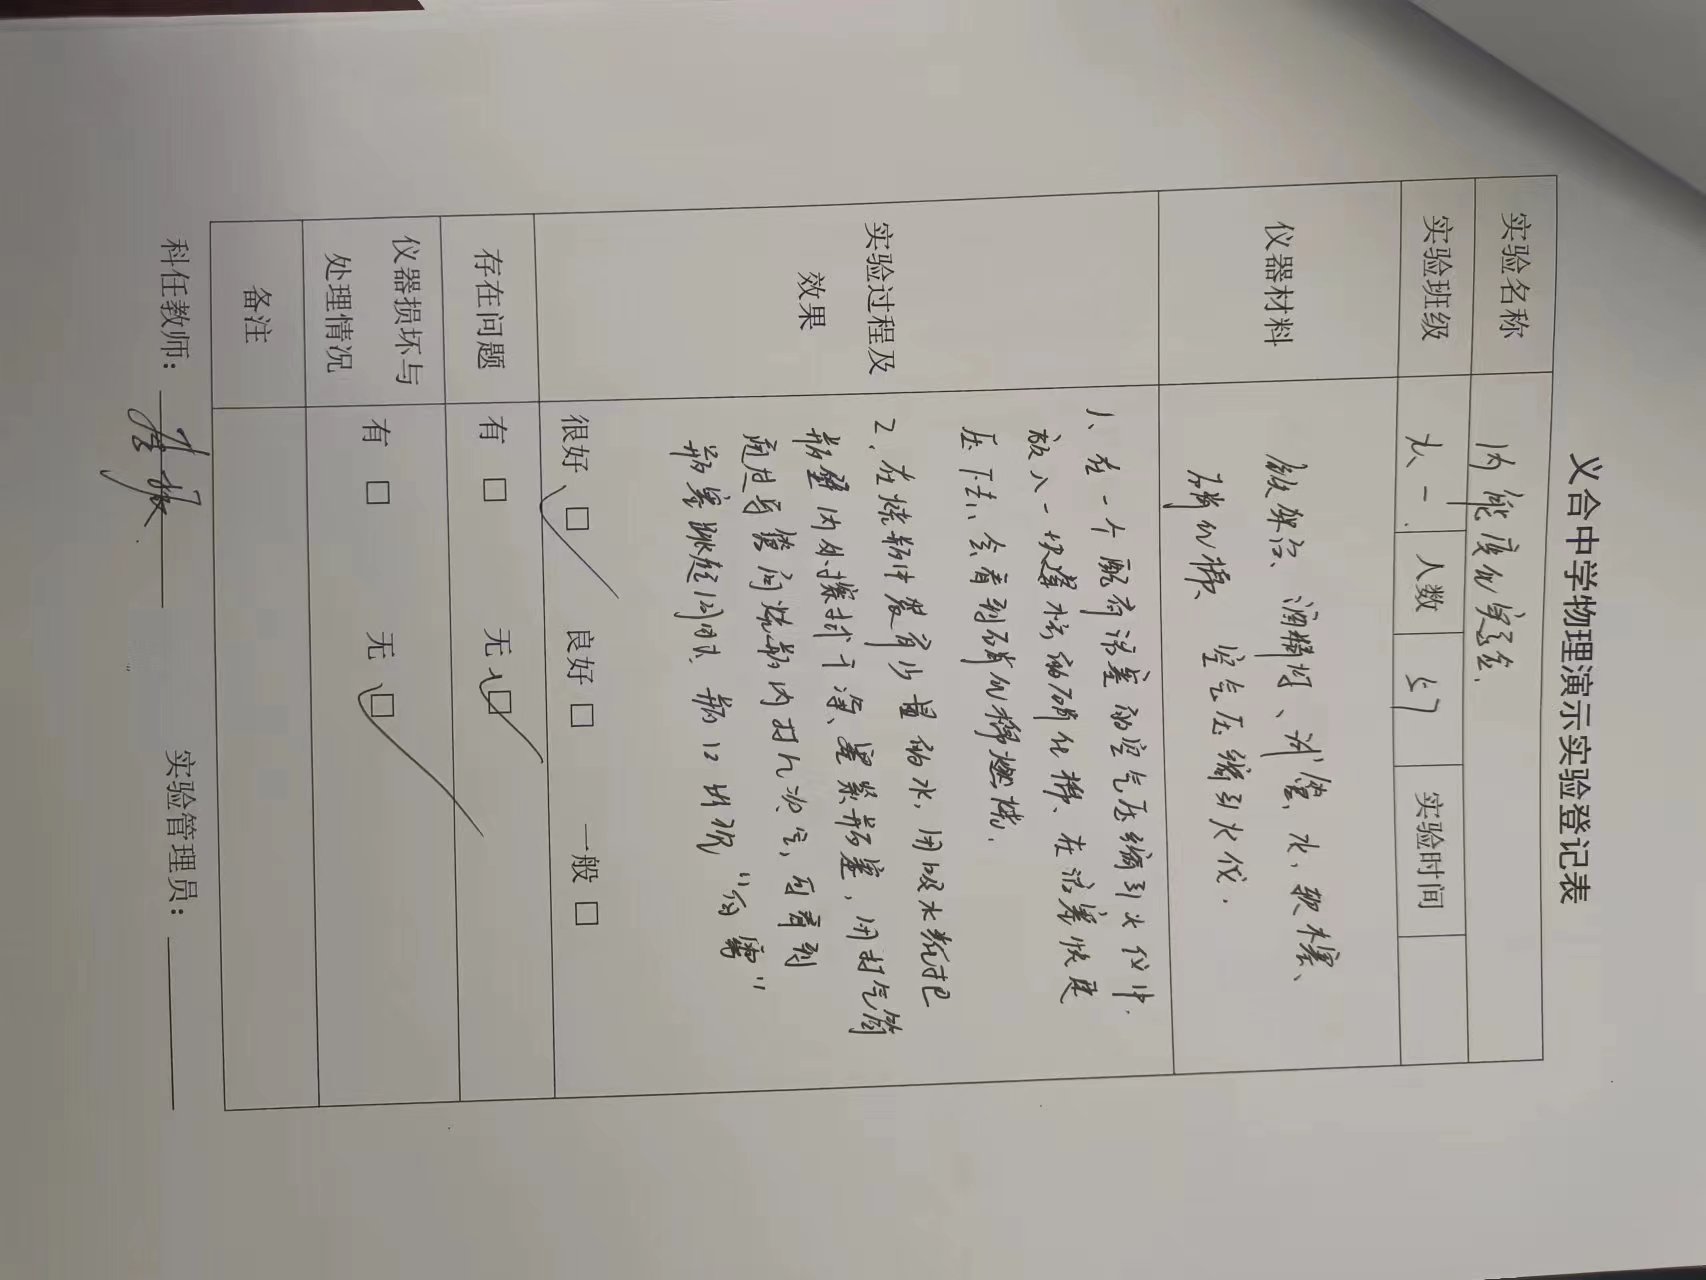 义合中学物理演示实验登记表
实验名称 内能变化实验
实验班级 九一. 人数 57 实验时间
仪器材料 铁架台、酒精灯、试管、水、软木塞、
硝化棉、空气压缩引火仪.
实验过程及
效果
1、在一个配有活塞的空气压缩引火仪中.
放入一块蓬松的硝化棉、在活塞快速
压下去、会看到硝化棉燃烧.
2、在烧瓶中装有少量的水,用吸水纸把
瓶壁内外擦拭干净、塞紧瓶塞,用打气筒
通过导管向烧瓶内打几次气,可看到
瓶塞跳起同时、瓶口出现“白雾”
很好 □ 良好 □ 一般 □
存在问题 有 □ 无 □
仪器损坏与
处理情况
有 □ 无 □
备注
科任教师: 实验管理员: